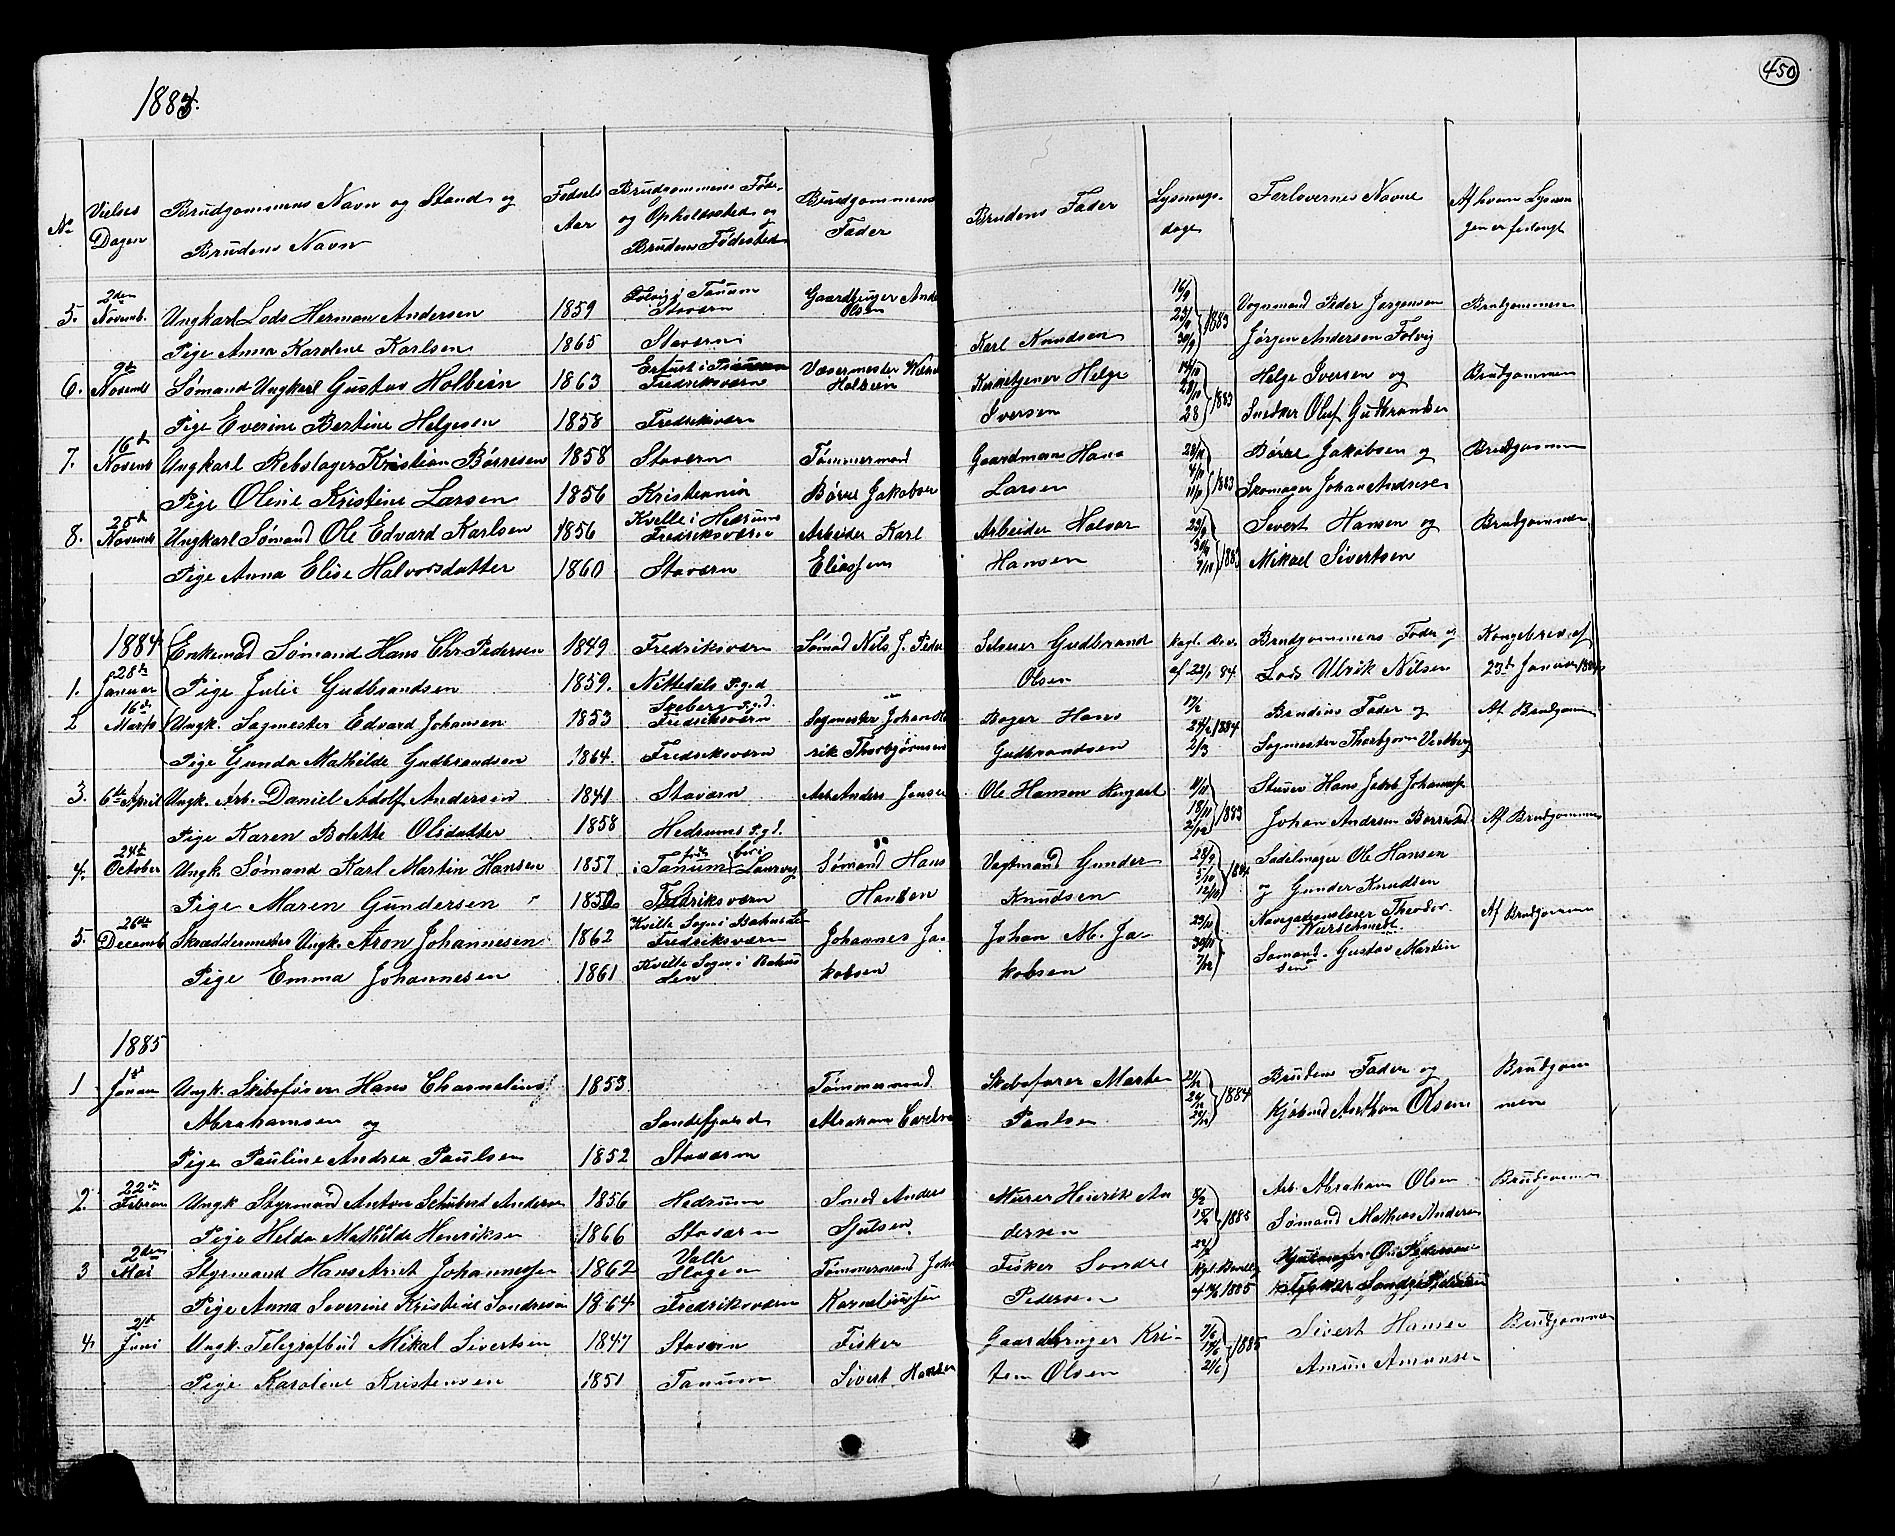 1883.
450
No Vielses Dagen Brudgommens Navn og Stand og Brudens Navn Fødsels Aar Brudgommens Føde- og Opholdssted og Brudens Fødested Brudgommens Fader Brudens Fader Lysnings- dage Forlovernes Navne Af hvem Lysningen er forlangt
5. 2den Novemb. Ungkarl Lods Herman Andersen 1859 Folvig i Tanum Staværn Gaardbruger Anders Olsen 16/9 23/9 30/9 1883 Vognmand Peder Jørgensen Brudgommen
Pige Anna Karoline Karlsen 1865 Staværn Karl Knudsen Jørgen Andersen Folvig
6. 9de Novemb Sømand Ungkarl Gustav Holbein 1863 i Tanum Fredriksværn Holbein Kirketjener Helge 14/10 21/10 28 1883 Helge Iversen og Brudgommen
Pige Everine Bertine Helgesen 1858 Fredriksværn Iversen Snedker Oluf Gudbrandsen
7. 16d Novemb Ungkarl Rebslager Kristian Børresen 1858 Staværn Tømmermand Gaardmann Hans 4/11 11/11 1883 Børre Jakobsen og Brudgommen
Pige Oline Kristine Larsen 1856 Kristiania Børre Jakobsen Larsen Skomager Johan Andresen
8. 25d Novemb Ungkarl Sømand Ole Edvard Karlsen 1856 Kvelle i Hedrums Fredriksværn Arbeider Karl Arbeider Halvor 23/9 30/9 7/10 1883 Sivert Hansen og Brudgommen
Pige Anna Elise Halvorsdatter 1860 Staværn Eliassen Hansen Mikael Sivertsen
1884
1. 28de Januar Enkemand Sømand Hans Chr Pedersen 1849 Fredriksværn Sømand Nils J. Peder Gudbrand Kgl. Bev. Brudgommens Fader og Kongebrev af
Pige Julie Gudbrandsen 1859. Nittedals P.g.d Olsen af 23/1 84 Lods Ulrik Nilsen 23de Januar 1884
2 16de Marts Ungk. Sagmester Edvard Johansen 1853 Skeberg P.g.d. Fredriksværn Sagmester Johan Hen Bager Hans 17/2 24/2 1884 2/3 Brudens Fader og Af Brudgommen
Pige Gunda Mathilde Gudbrandsen 1864. Fredriksværn rik Thorbjørnsen Gudbrandsen Sagmester Thorbjørn Vestberg
3. 6te April Ungk. Arb. Daniel Adolf Andersen 1841 Staværn Arb. Anders Jensen Ole Hansen 11/11 18/11 2/12 1883 Stuver Hans Jakob Johannessen
Pige Karen Bolette Olsdatter 1858 Hedrums P.gd. Johan Andersen Af Brudgommen
4. 24de October Ungk Sømand Karl Martin Hansen 1857 i Tanum Laurvig Sømand Hans Vagtmand Gunder 28/9 5/10 12/10 1884 Sadelmager Ole Hansen
Pige Maren Gundersen 1850 Fredriksværn Hansen Knudsen og Gunder Knudsen
5. 26de Decemb Skræddermester Ungk. Aron Johannesen 1862 Kville Sogn i Bahus Len Fredriksværn Johannes Ja- Johan M. Ja- 23/11 30/11 7/12 Navigationslærer Theodor Af Brudgommen
Pige Emma Johannesen 1861 Kville Sogn i Bahus len kobsen kobsen Sømand Gustav Martinsen
1885
1 1st Januar Ungk. Skibsfører Hans Charnelius 1853. Tømmermand Skibsfører Marte 1884 Brudens Fader og Brudgom
Abrahamsen og Sandefjord Abraham Paulsen Anthon Olsen men
Pige Pauline Andrea Paulsen 1852 Staværn
2. 22de Februar Ungk Styrmand Anton Schubert Andersen 1856 Hedrum Smed Anders Murer Henrik An 8/2 15/2 22/2 1885 Arb. Abraham Olsen Brudgommen
Pige Helda Mathilde Henriksen 1866 Staværn dersen Sømand Mathias Andersen
3 2den Mai Styrmand Hans Arnt Johannessen 1862 Valle Slagen Tømmermand Joh Fisker Sondre Kgl. Bevilg
Pige Anna Severine Kristine Sondresen 1864 Fredriksværn Kornelinssen Pedersen 1885 Sondre Pedersen
4. 21de Juni Ungk. Telegrafbud Mikal Sivertsen 1847 Stavern Fisker Gaardbruger Kri- 7/6 14/6 21/6 1885 Sivert Hansen Brudgommen
Pige Karoline Kristensen 1851 Tanum Sivert Hansen sten Olsen Amun Amunsen